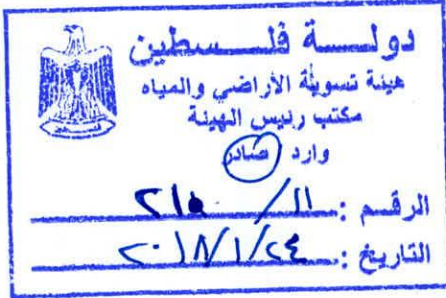 دولة فلسطين
هيئة تسوية الأراضي والمياه
مكتب رئيس الهيئة
وارد صادر
الرقم : ٢١٥ / ١١
التاريخ : ٢٠١٨/١/٢٤